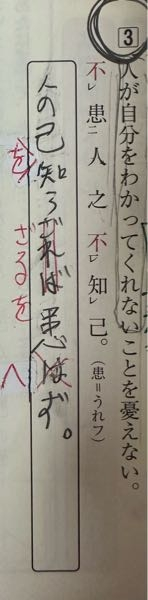 3 人が自分をわかってくれないことを憂えない。
不レ患二人之不レ知レ己。(患=うれフ)
人の己知らざれば患はず。
を ざるを へ